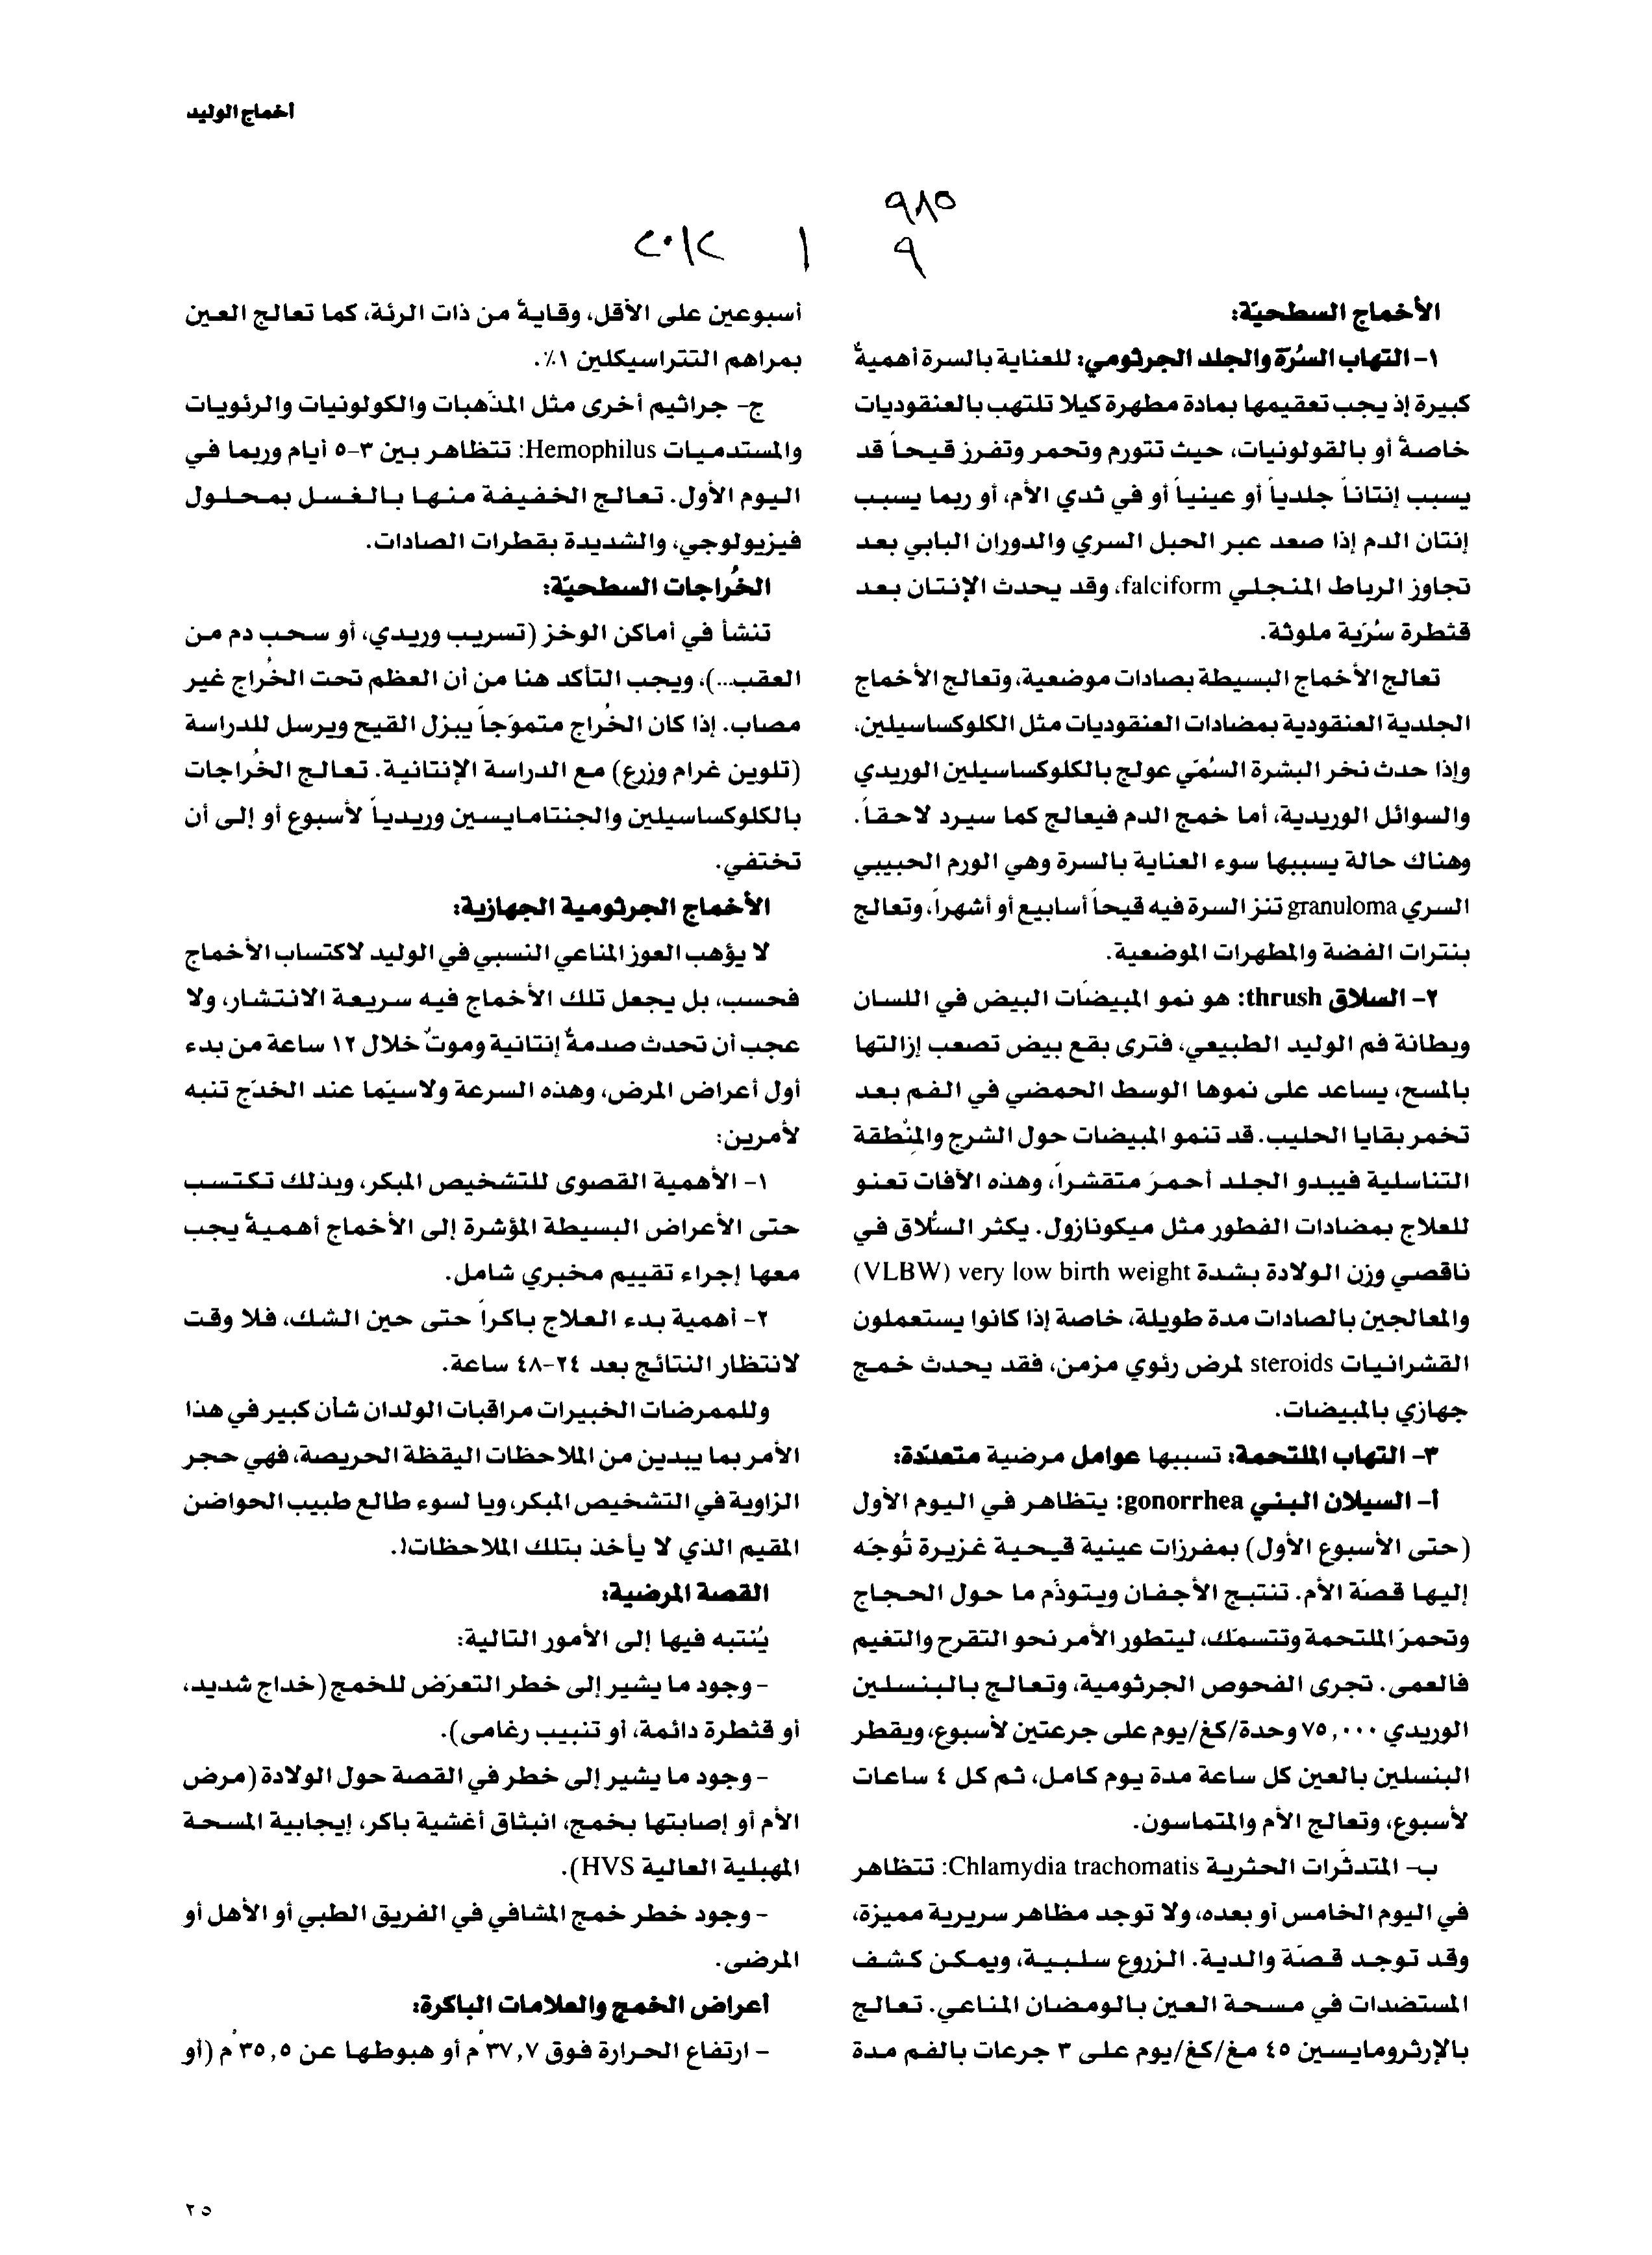 أخماج الوليد
٩٨٥
٩
١
٢٠١٢
الأخماج السطحيّة:
١- التهاب السُرّة والجلد الجرثومي: للعناية بالسرة أهميةٌ
كبيرة إذ يجب تعقيمها بمادة مطهرة كيلا تلتهب بالعنقوديات
خاصةً أو بالقولونيات، حيث تتورم وتحمر وتفرز قيحاً قد
يسبب إنتاناً جلدياً أو عينياً أو في ثدي الأم، أو ربما يسبب
إنتان الدم إذا صعد عبر الحبل السري والدوران البابي بعد
تجاوز الرباط المنجلي falciform، وقد يحدث الإنتان بعد
قثطرة سُرّية ملوثة.
تعالج الأخماج البسيطة بصادات موضعية، وتعالج الأخماج
الجلدية العنقودية بمضادات العنقوديات مثل الكلوكساسيلين،
وإذا حدث نخر البشرة السُمّي عولج بالكلوكساسيلين الوريدي
والسوائل الوريدية، أما خمج الدم فيعالج كما سيرد لاحقاً.
وهناك حالة يسببها سوء العناية بالسرة وهي الورم الحبيبي
السري granuloma تنز السرة فيه قيحاً أسابيع أو أشهراً، وتعالج
بنترات الفضة والمطهرات الموضعية.
٢- السلاق thrush: هو نمو المبيضّات البيض في اللسان
وبطانة فم الوليد الطبيعي، فترى بقع بيض تصعب إزالتها
بالمسح، يساعد على نموها الوسط الحمضي في الفم بعد
تخمر بقايا الحليب. قد تنمو المبيضات حول الشرج والمِنْطقة
التناسلية فيبدو الجلد أحمرَ متقشراً، وهذه الآفات تعنو
للعلاج بمضادات الفطور مثل ميكونازول. يكثر السُّلاق في
ناقصي وزن الولادة بشدة very low birth weight (VLBW)
والمعالجين بالصادات مدة طويلة، خاصة إذا كانوا يستعملون
القشرانيات steroids لمرض رئوي مزمن، فقد يحدث خمج
جهازي بالمبيضات.
٣- التهاب الملتحمة: تسببها عوامل مرضية متعدّدة:
أ- السيلان البني gonorrhea: يتظاهر في اليوم الأول
(حتى الأسبوع الأول) بمفرزات عينية قيحية غزيرة تُوجّه
إليها قصّة الأم. تنتبج الأجفان ويتوذّم ما حول الحجاج
وتحمرّ الملتحمة وتتسمّك، ليتطور الأمر نحو التقرح والتغيم
فالعمى. تجرى الفحوص الجرثومية، وتعالج بالبنسلين
الوريدي ٧٥,٠٠٠ وحدة/كغ/يوم على جرعتين لأسبوع، ويقطر
البنسلين بالعين كل ساعة مدة يوم كامل، ثم كل ٤ ساعات
لأسبوع، وتعالج الأم والمتماسون.
ب- المتدثّرات الحثرية Chlamydia trachomatis: تتظاهر
في اليوم الخامس أو بعده، ولا توجد مظاهر سريرية مميزة،
وقد توجد قصّة والدية. الزروع سلبية، ويمكن كشف
المستضدات في مسحة العين بالومضان المناعي. تعالج
بالإرثرومايسين ٤٥ مغ/كغ/يوم على ٣ جرعات بالفم مدة
أسبوعين على الأقل، وقايةً من ذات الرئة، كما تعالج العين
بمراهم التتراسيكلين ١٪.
ج- جراثيم أخرى مثل المذْهبات والكولونيات والرئويات
والمستدميات Hemophilus: تتظاهر بين ٣-٥ أيام وربما في
اليوم الأول. تعالج الخفيفة منها بالغسل بمحلول
فيزيولوجي، والشديدة بقطرات الصادات.
الخُراجات السطحيّة:
تنشأ في أماكن الوخز (تسريب وريدي، أو سحب دم من
العقب...)، ويجب التأكد هنا من أن العظم تحت الخُراج غير
مصاب. إذا كان الخُراج متموّجاً يبزل القيح ويرسل للدراسة
(تلوين غرام وزرع) مع الدراسة الإنتانية. تعالج الخُراجات
بالكلوكساسيلين والجنتامايسين وريدياً لأسبوع أو إلى أن
تختفي.
الأخماج الجرثومية الجهازية:
لا يؤهب العوز المناعي النسبي في الوليد لاكتساب الأخماج
فحسب، بل يجعل تلك الأخماج فيه سريعة الانتشار، ولا
عجب أن تحدث صدمةٌ إنتانية وموتٌ خلال ١٢ ساعة من بدء
أول أعراض المرض، وهذه السرعة ولاسيّما عند الخدّج تنبه
لأمرين:
١- الأهمية القصوى للتشخيص المبكر، وبذلك تكتسب
حتى الأعراض البسيطة المؤشرة إلى الأخماج أهميةً يجب
معها إجراء تقييم مخبري شامل.
٢- أهمية بدء العلاج باكراً حتى حين الشك، فلا وقت
لانتظار النتائج بعد ٢٤-٤٨ ساعة.
وللممرضات الخبيرات مراقبات الولدان شأن كبير في هذا
الأمر بما يبدين من الملاحظات اليقظة الحريصة، فهي حجر
الزاوية في التشخيص المبكر، ويا لسوء طالع طبيب الحواضن
المقيم الذي لا يأخذ بتلك الملاحظات!.
القصة المرضية:
يُنتبه فيها إلى الأمور التالية:
- وجود ما يشير إلى خطر التعرّض للخمج (خداج شديد،
أو قثطرة دائمة، أو تنبيب رغامى).
- وجود ما يشير إلى خطر في القصة حول الولادة (مرض
الأم أو إصابتها بخمج، انبثاق أغشية باكر، إيجابية المسحة
المهبلية العالية HVS).
- وجود خطر خمج المشافي في الفريق الطبي أو الأهل أو
المرضى.
أعراض الخمج والعلامات الباكرة:
- ارتفاع الحرارة فوق ٣٧,٧ْ م أو هبوطها عن ٣٥,٥ْ م (أو
٢٥